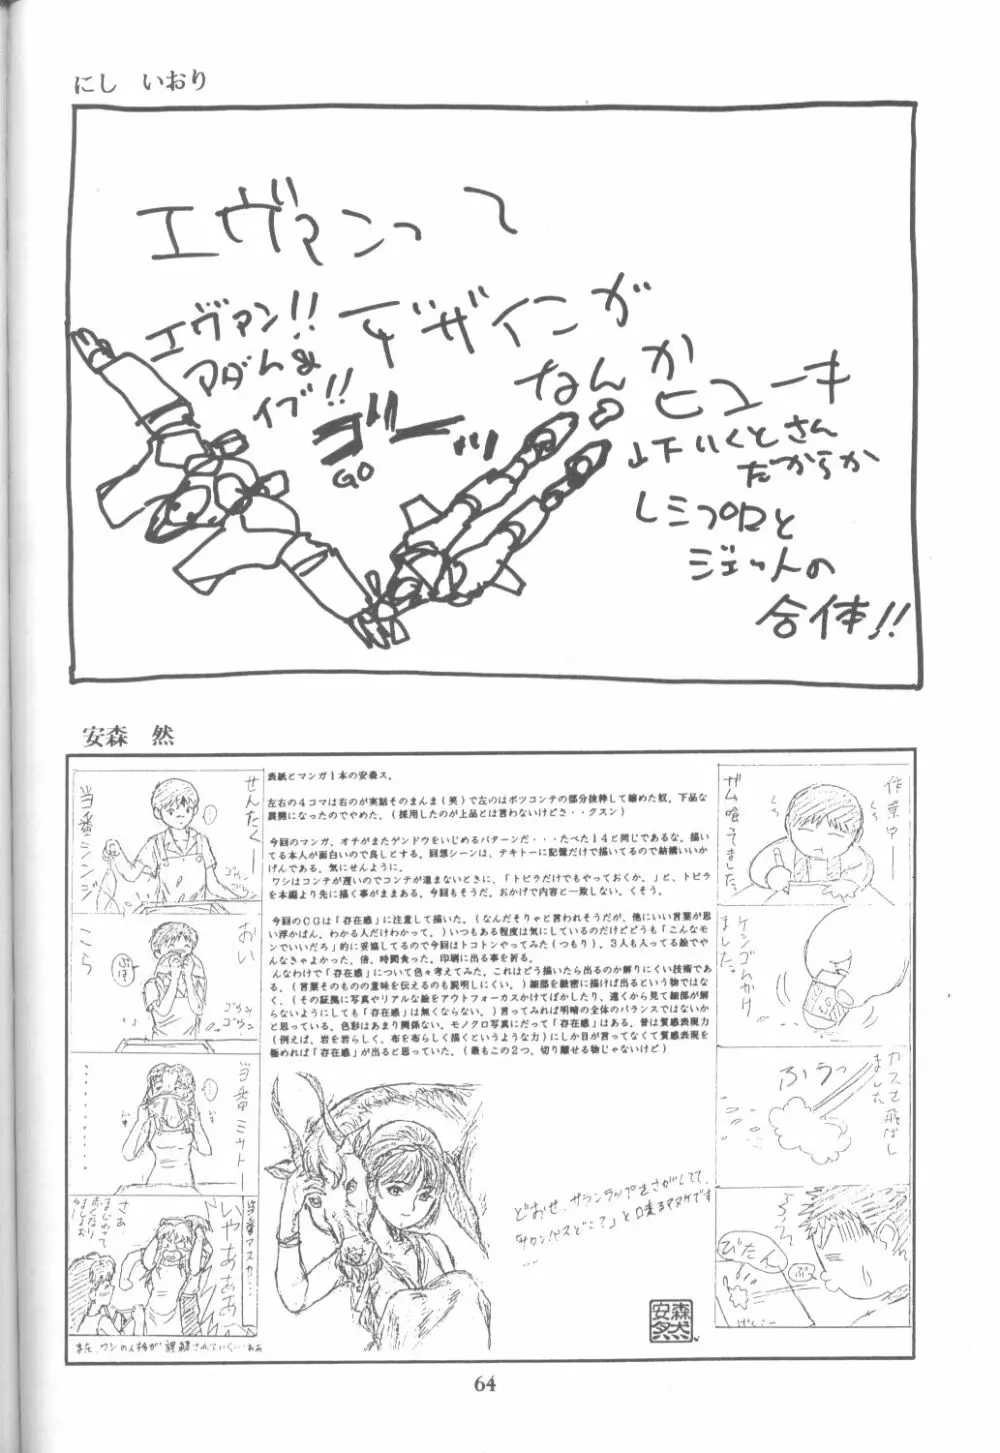 にし　いおり
エヴァンって
デザインが
なんかヒューキ
エヴァン!!
アダム&
イブ!!
ゴーッ
GO
山下いくとさん
だからか
レシプロと
ジェットの
合体!!
安森　然
せんたくー
当番シンジ
おい
こら
当番ミサトー
‥‥‥‥
当番アスカ…
いやあああ
さあ、
表紙とマンガ1本の安森ス。
左右の4コマは右のが実話そのまんま(笑)で左のはボツコンテの部分抜粋して縮めた奴。下品な
展開になったのでやめた。(採用したのが上品とは言わないけどさ・・グスン)
今回のマンガ、オチがまたゲンドウをいじめるパターンだ・・・たべた14と同じであるな。描い
てる本人が面白いので良しとする。回想シーンは、テキトーに記憶だけで描いてるので結構いいか
げんである。気にせんように。
ワシはコンテが遅いのでコンテが進まないときに、「トビラだけでもやっておくか。」と、トビラ
を本編より先に描く事がままある。今回もそうだ。おかげで内容と一致しない。くそう。
今回のCGは「存在感」に注意して描いた。(なんだそりゃと言われそうだが、他にいい言葉が思
い浮かばん、わかる人だけわかって。)いつもある程度は気にしているのだけどどうも「こんなモ
ンでいいだろ」的に妥協してるので今回はトコトンやってみた(つもり)。3人も入ってる絵でや
んなきゃよかった。倍、時間食った。印刷に出る事を祈る。
んなわけで「存在感」について色々考えてみた。これはどう描いたら出るのか解りにくい技術であ
る。(言葉そのものの意味を伝えるのも説明しにくい。)細部を緻密に描けば出るという物ではな
く、(その証拠に写真やリアルな絵をアウトフォーカスかけてぼかしたり、遠くから見て細部が解
らないようにしても「存在感」は無くならない。)言ってみれば明暗の全体のバランスではないか
と思っている。色彩はあまり関係ない。モノクロ写真にだって「存在感」はある。昔は質感表現力
(例えば、岩を岩らしく、布を布らしく描くというような力)にしか目が言ってなくて質感表現を
極めれば「存在感」が出ると思っていた。(最もこの2つ、切り離せる物じゃないけど)
どおせ、サランラップをさがしてて、
「サロンパスどこ?」と口走るアタイです
....
安森然
作業中ー
ガム喰ってました。
ケシゴムかけ
ました。
カスを飛ばし
ました
ふうっ
ぷっ
ぴたん
げんこー
また、ワシの人格が誤解されていく…ああ
64